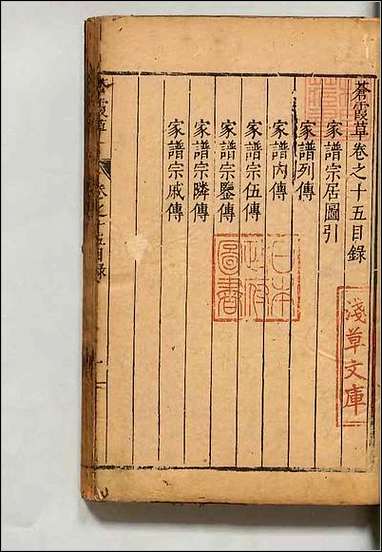 蒼霞草卷之十五目錄
家譜宗居圖引
家譜列傳
家譜內傳
家譜宗伍傳
家譜宗鑒傳
家譜宗隣傳
家譜宗戚傳
蒼霞草
卷之十五目錄
一
淺草文庫
日本
政府
圖書